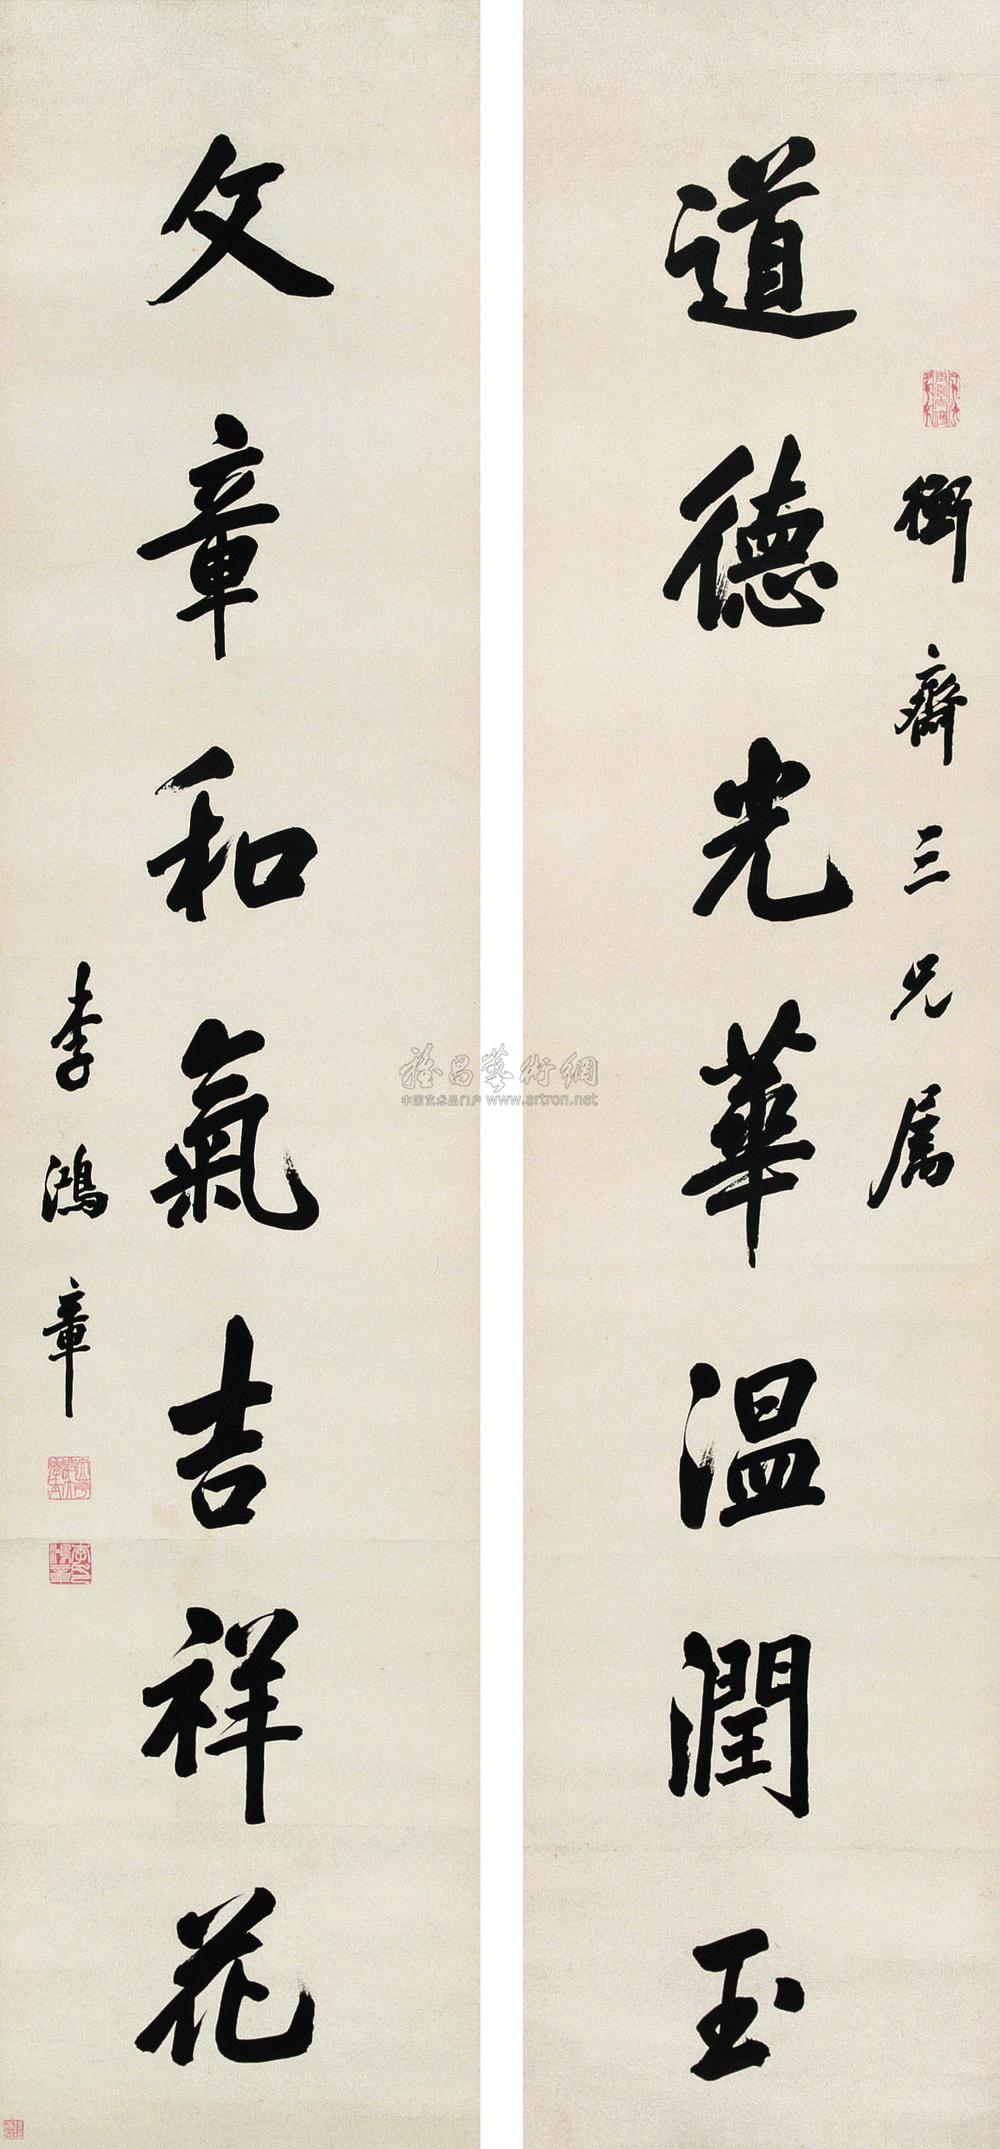 道德光華溫潤玉
衡齋三兄属
文章和氣吉祥花
李鴻章
雅昌藝術網
中国艺术品门户 www.artron.net